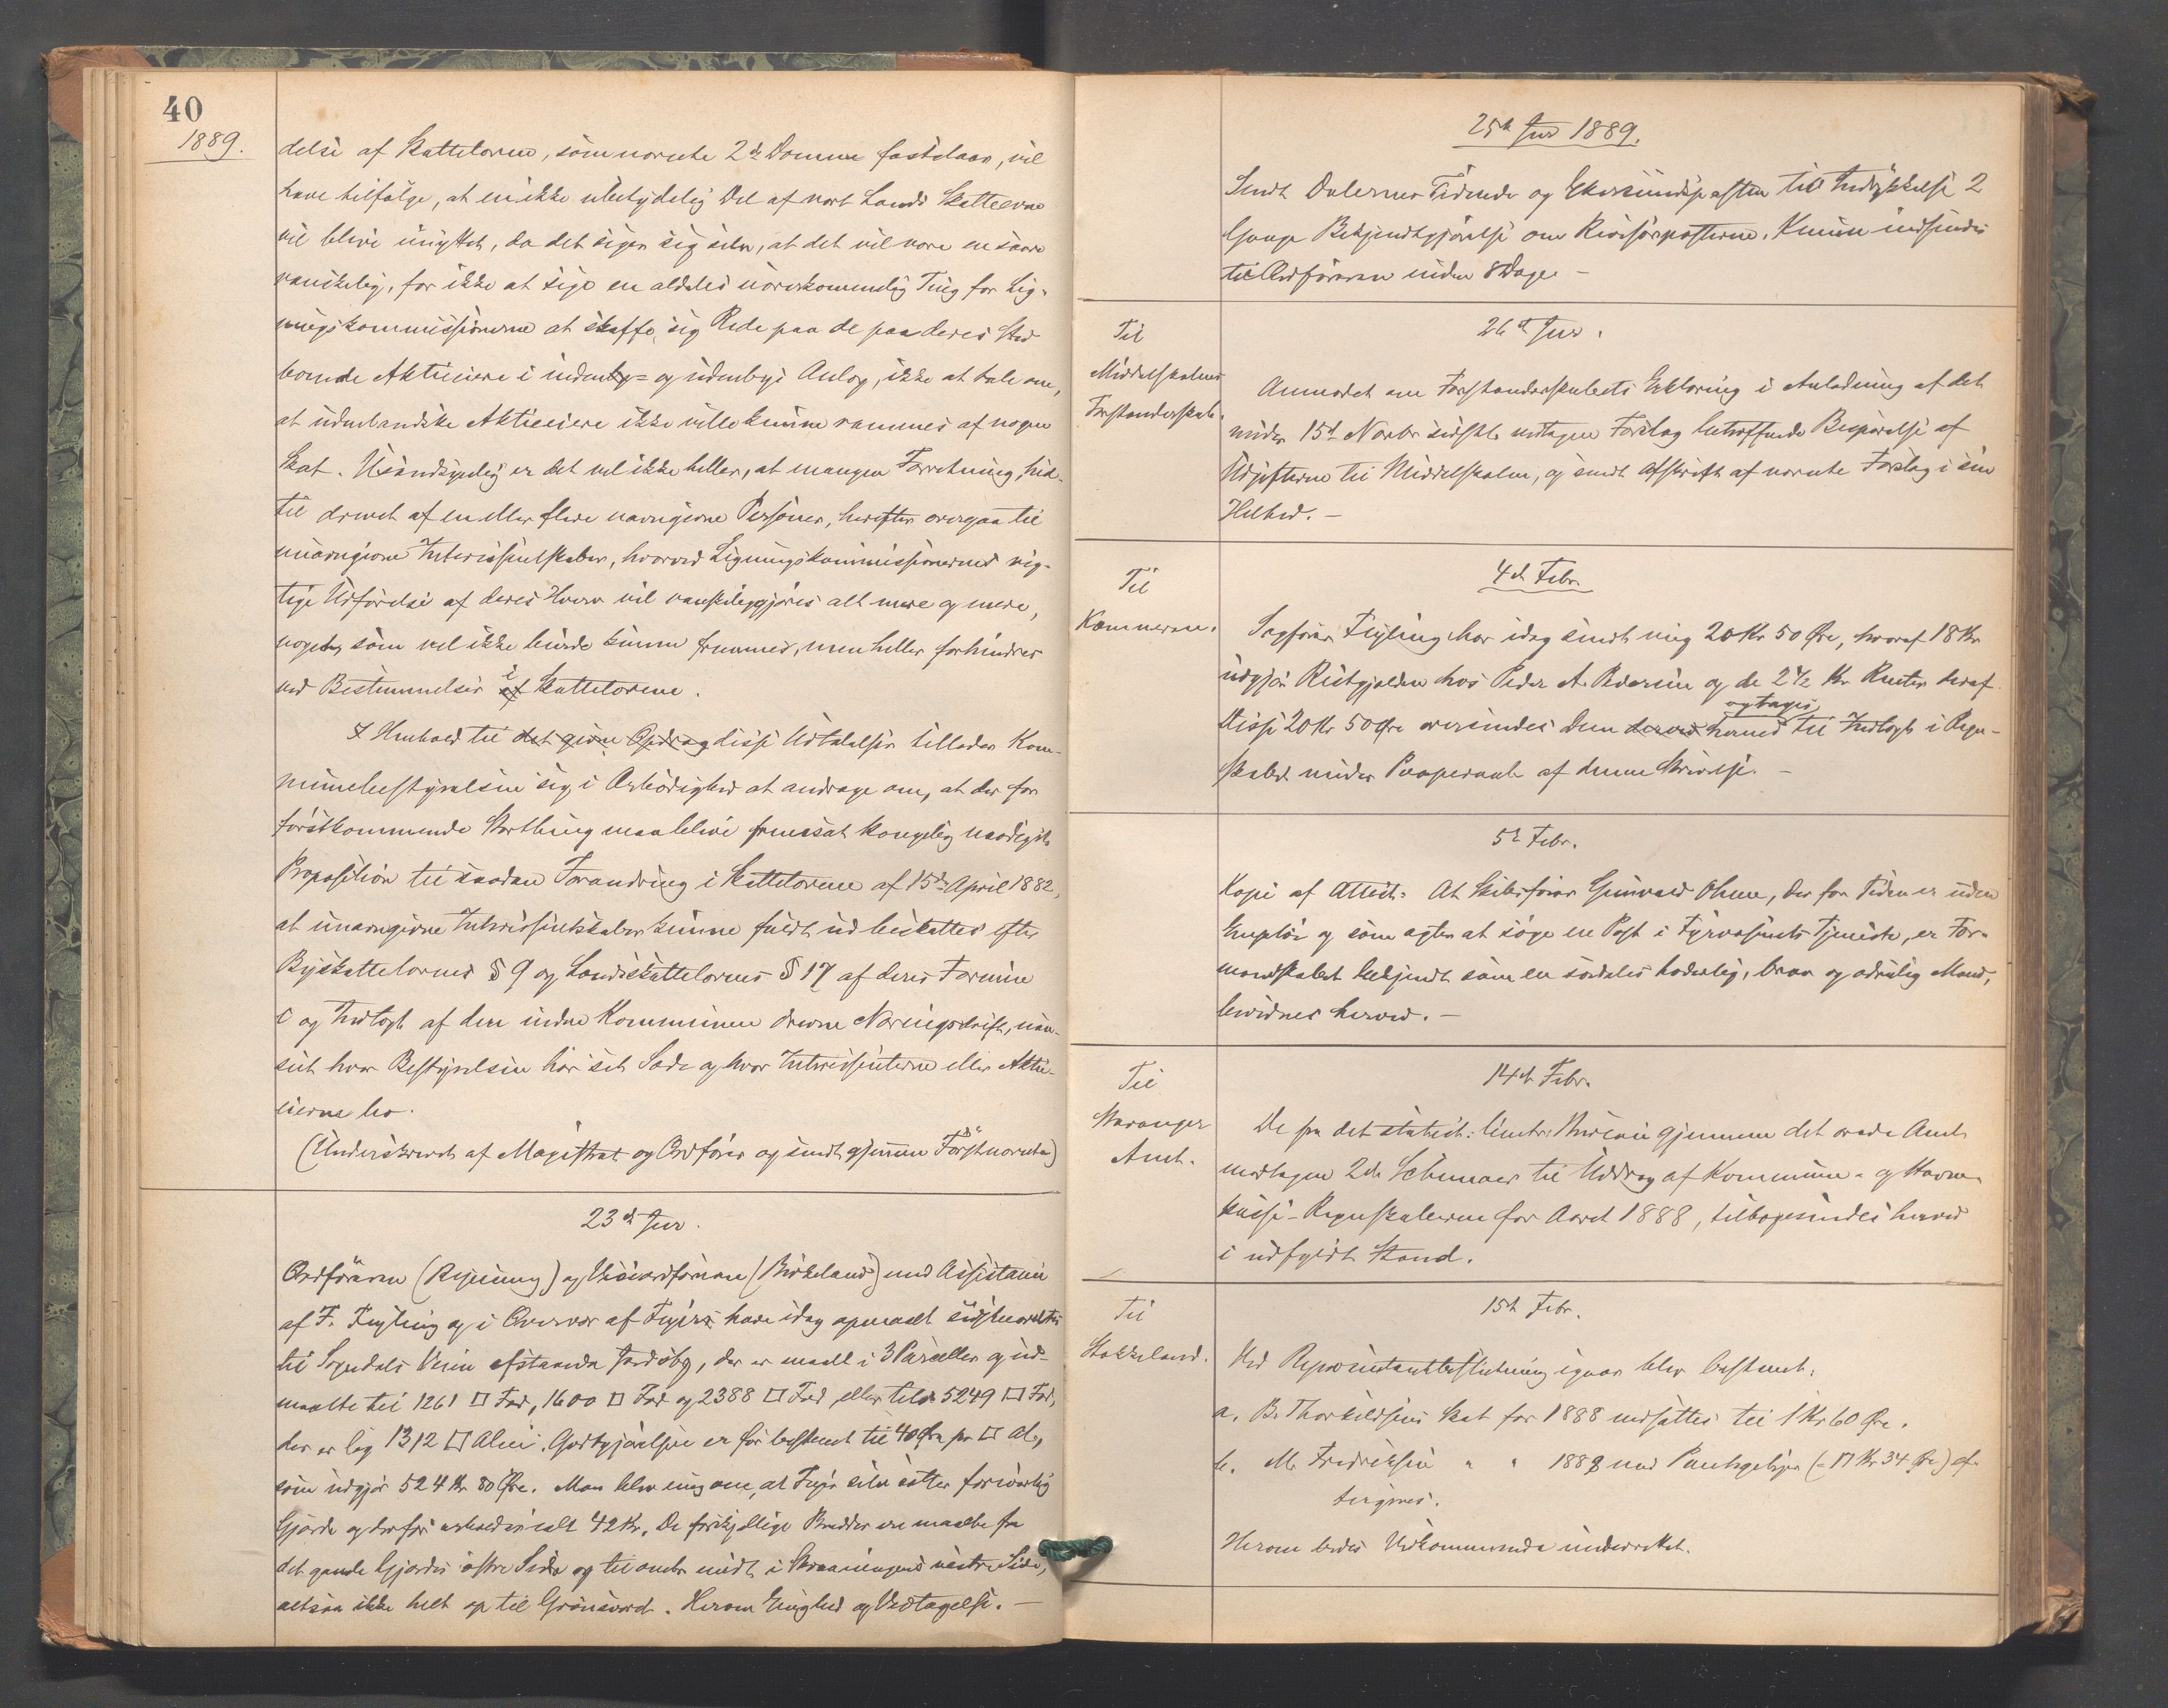 40
1889.
delse af Skattelovene, som nævnte 2de Domme fastslaar, vil
have tilfølge, at en ikke ubetydelig Del af vort Lands Skatteevne
vil blive unyttet, da det siger sig selv, at det vil være en saare
vanskelig, for ikke at sige en aldeles uoverkommelig Ting for Lig-
ningskommissionerne at skaffe sig Rede paa de paa deres Sted
boende Aktieeiere i indenby- og udenbys Anlæg, ikke at tale om,
at udenlandske Aktieeiere ikke ville kunne rammes af nogen
Skat. Usandsynlig er det vel ikke heller, at mangen Forretning, hid-
til drevet af en eller flere navngivne Personer, herefter overgaa til
unavngivne Interessentskaber, hvorved Ligningskommissionernes rig-
tige Udførelse af deres Hverv vil vanskeliggjøres alt mere og mere,
noget, som vel ikke burde kunne fremmes, men heller forhindres
ved Bestemmelser i Skattelovene.
I Henhold til det givne Opdrag disse Udtalelser tillader Kom-
munebestyrelsen sig i Ærbødighed at andrage om, at der for
førstkommende Storthing maa blive fremsat kongelig naadigst
Proposition til saadan Forandring i Skattelovene af 15de April 1882,
at unavngivne Interessentskaber kunne fuldt ud beskattes efter
Byskattelovens § 9 og Landsskattelovens § 17 af deres Formue
i og Indtægt af den inden Kommunen drevne Næringsdrift, uan-
seet hvor Bestyrelsen har sit Sæde og hvor Interessenterne eller Aktie-
eierne bo.
(Underskrevet af Magistrat og Ordfører og sendt gjennem Førstnævnte)
23de Jnr.
Ordføreren (Rejening) og Viceordføreren (Birkeland) med Assistance
af F. Feyling og i Overvær af Feyer have idag opmaalt
til Sogndals Veien afstaaede Jordsbg, der er maalt i 3 Parceller og ud-
maalte til 1261 □ Fod, 1600 □ Fod og 2388 □ Fod eller tils. 5249 □ Fod,
der er lig 1312 □ Alen. Godtgjørelsen er før bestemt til 40 Øre pr □ Al.,
som udgjør 524 Kr 80 Øre. Man blev enig om, at Feyer selv sætter forsvarlig
Gjærde og derfor erholder ialt 42 Kr. De forskjellige Bredder ere maalte fra
det gamle Gjærdes østre Side og til omtr. midt i Skraaningens vestre Side,
altsaa ikke helt op til Grønsværd. Herom Enighed og Vedtagelse. —
25de Jnr 1889.
Sendt Dalernes Tidende og Ekersundsposten til Indrykkelse 2
Gange Bekjendtgjørelse om Revisorposterne. Kunne indsendes
til Ordføreren inden 8 Dage —
Til
Middelskolens
Forstanderskab.
26de Jnr.
Anmodet om Forstanderskabets Erklæring i Anledning af det
under 15de Novbr sidstl. vedtagne Forslag betreffende Besparelse af
Udgifterne til Middelskolen, og sendt Afskrift af nævnte Forslag i sin
Helhed. —
Til
Kæmneren.
4de Febr.
Sagfører Feyling har idag sendt mig 20 Kr 50 Øre, hvoraf 18 Kr
udgjør Restgjælden hos Peder A. Pedersen og de 2½ Kr Renter deraf.
Disse 20 Kr 50 Øre oversendes Dem derved herved til Indtægt i Regn-
optages
skabet under Paaperaab af denne Skrivelse. —
5te Febr.
Kopi af Attest: At Skibsfører Gunvald Olsen, der for Tiden er uden
Employ og som agter at søge en Post i Fyrvæsenets Tjeneste, er For-
mandskabet bekjendt som en særdeles hæderlig, brav og ædruelig Mand,
bevidnes herved. —
Til
Stavanger
Amt.
14de Febr.
De fra det statist: Centr: Bureau gjennem det ærede Amt
modtagne 2de Schemaer til Uddrag af Kommune- og Havne-
kasse-Regnskaberne for Aaret 1888, tilbagesendes herved
i udfyldt Stand.
Til
Stokkeland.
15de Febr.
Ved Repræsentantbeslutning igaar blev bestemt:
a. B. Thorkildsens Skat for 1888 nedsættes til 1 Kr 60 Øre.
b. M. Fredriksen " " 1888 med Pantegebyr (= 17 Kr 34 Øre) ef-
tergives.
Herom bedes Vedkommende underrettet.